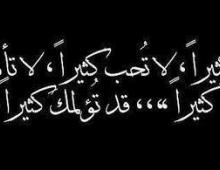 ثيراً ، لا تُحب كثيراً ، لا تأ
كثيراً ،،،، قد تؤلمك كثيراً